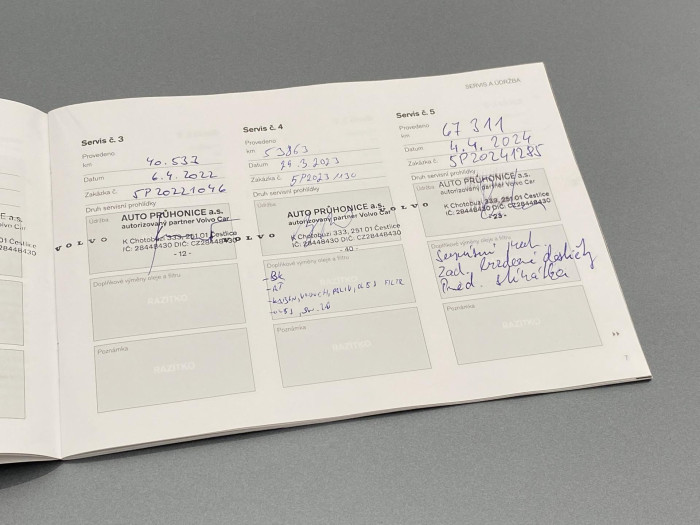 SERVIS A ÚDRŽBA
Servis č. 3
Provedeno
km 40.537
Datum 6.4.2022
Zakázka č. SP20221046
Druh servisní prohlídky
Údržba
AUTO PRŮHONICE a.s.
autorizovaný partner Volvo Car
K Chotobuzi 333, 251 01 Čestlice
IČ: 28448430 DIČ: CZ28448430
- 12 -
VOLVO
Doplňkové výměny oleje a filtru
RAZÍTKO
Poznámka
RAZÍTKO
Servis č. 4
Provedeno
km 53863
Datum 29.3.2023
Zakázka č. SP20231130
Druh servisní prohlídky
Údržba
AUTO PRŮHONICE a.s.
autorizovaný partner Volvo Car
K Chotobuzi 333, 251 01 Čestlice
IČ: 28448430 DIČ: CZ28448430
- 40 -
VOLVO
Doplňkové výměny oleje a filtru
-BK
Poznámka
RAZÍTKO
Servis č. 5
Provedeno
km 67 311
Datum 4.4.2024
Zakázka č. SP20241285
Druh servisní prohlídky
Údržba
AUTO PRŮHONICE a.s.
autorizovaný partner Volvo Car
K Chotobuzi 333, 251 01 Čestlice
IČ: 28448430 DIČ: CZ28448430
- 23 -
VOLVO
Doplňkové výměny oleje a filtru
Zad. brzdové destičky
Poznámka
RAZÍTKO
7
a.s.
Volvo Car
01 Čestlice
48430